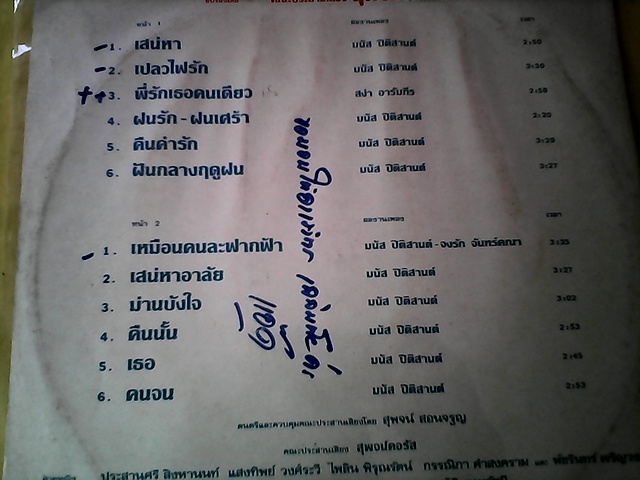 หน้า 1 ผลงานเพลง เวลา
1. เสน่หา มนัส ปิติสานต์ 2:50
2. เปลวไฟรัก มนัส ปิติสานต์
3. พี่รักเธอคนเดียว สง่า อารัมภีร 2:58
4. ฝนรัก - ฝนเศร้า มนัส ปิติสานต์ 2:20
5. คืนคำรัก มนัส ปิติสานต์ 3:29
6. ฝันกลางฤดูฝน มนัส ปิติสานต์ 3:27
หน้า 2 ผลงานเพลง เวลา
1. เหมือนคนละฟากฟ้า มนัส ปิติสานต์ - จงรัก จันทร์คณา 3:35
2. เสน่หาอาลัย มนัส ปิติสานต์ 3:27
3. ม่านบังใจ มนัส ปิติสานต์ 3:02
4. คืนนั้น มนัส ปิติสานต์ 2:53
5. เธอ มนัส ปิติสานต์ 2:45
6. คนจน มนัส ปิติสานต์ 2:53
ดนตรีและควบคุมคณะประสานเสียงโดย สุพจน์ สอนจรูญ
คณะประสานเสียง สุพจน์คอรัส
ประสานศรี สิงหานนท์ แสงทิพย์ วงศ์ระวี ไพลิน พิรุณรัตน์ กรรณิกา คำสงคราม และ พัชรินทร์